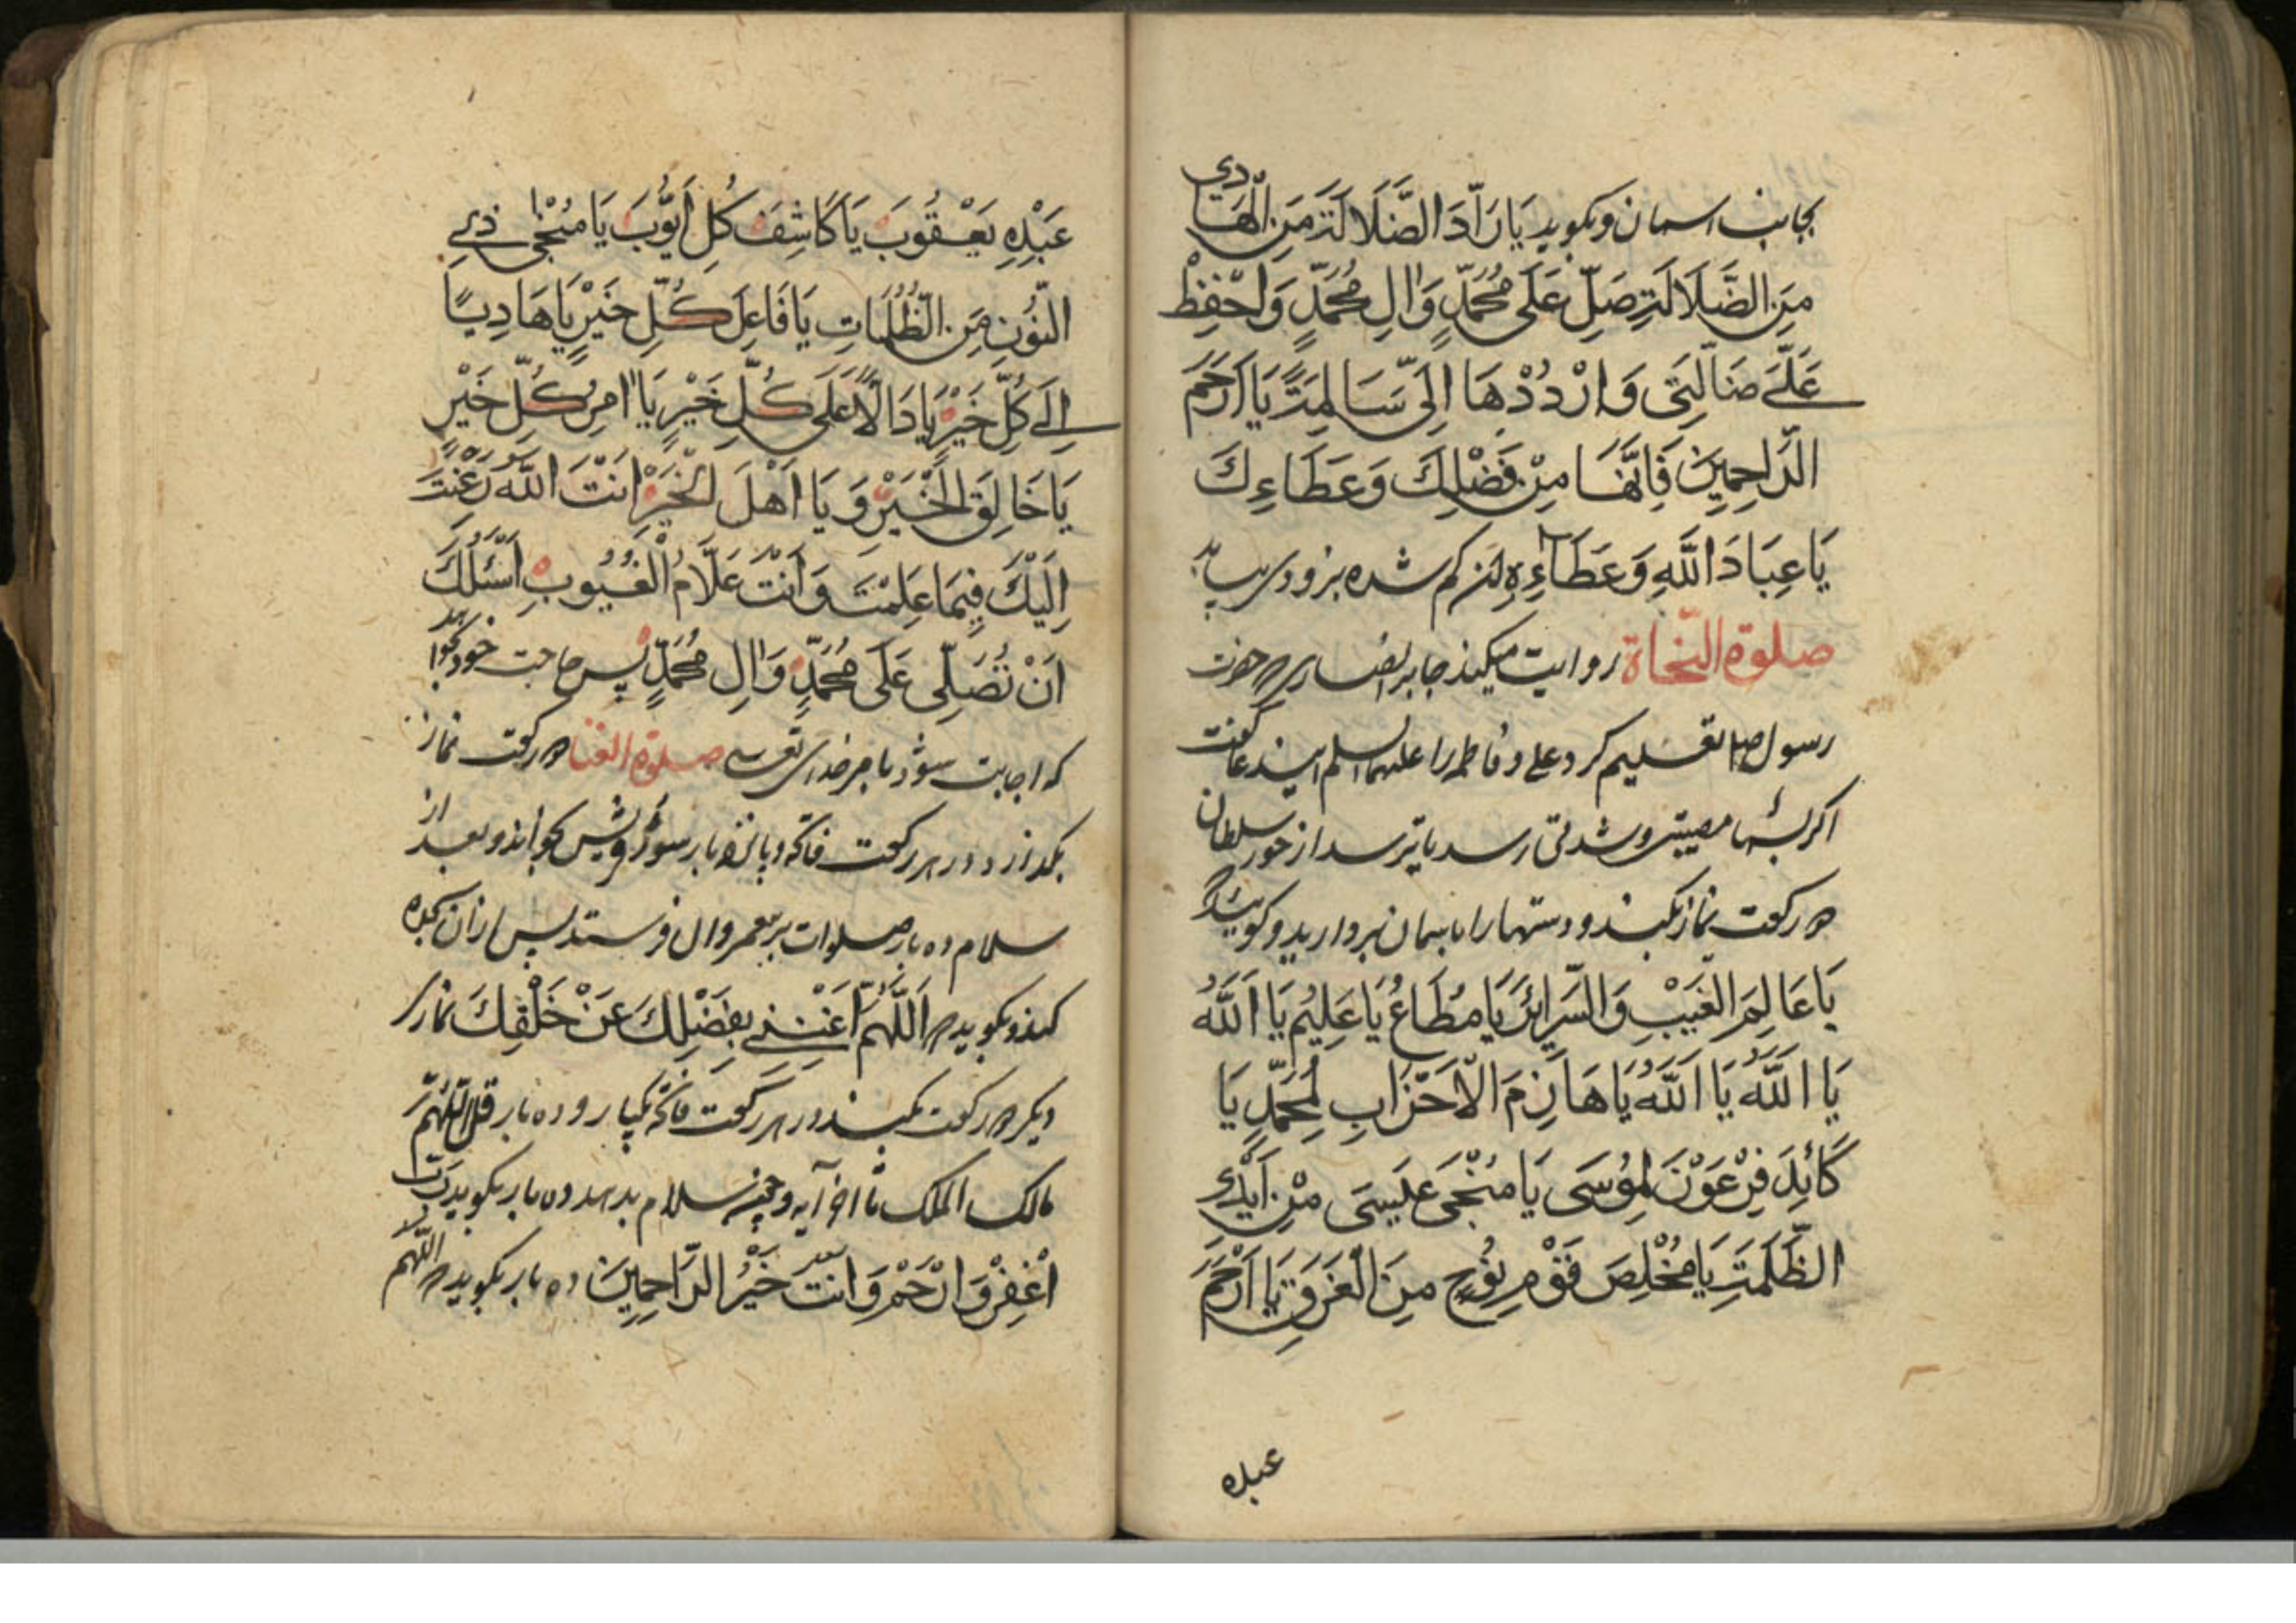 بجانب اسمان و بکوید یَا رَآدَّ الضَّلَالَةِ مَنِ الْهَادِي
مِنَ الضَّلَالَةِ صَلِّ عَلَى مُحَمَّدٍ وَاٰلِ مُحَمَّدٍ وَاحْفِظْ
عَلَيَّ ضَالَّتِي وَارْدُدْهَا اِلَيَّ سَالِمَةً يَا اَرْحَمَ
الرَّاحِمِينَ فَاِنَّهَا مِنْ فَضْلِكَ وَعَطَاءِكَ
يَا عِبَادَ اللَّهِ وَعَطَاءِهِ کم شده بزودی بیابد
صلوة النجاة روایت میکند جابر انصاری حضرت
رسول ص تعلیم کرد علی و فاطمه را علیهما السلم
اکر بشما مصیبتی و شدتی رسد یا ترسد از جور سلطان
دو رکعت نماز بکنید و دستها را باسمان بردارید و کویید
يَا عَالِمَ الْغَيْبِ وَالسَّرَائِرِ يَا مُطَاعُ يَا عَلِيمُ يَا اَللَّهُ
يَا اَللَّهُ يَا اَللَّهُ يَا هَازِمَ الْاَحْزَابِ لِمُحَمَّدٍ يَا
كَائِدَ فِرْعَوْنَ لِمُوسَى يَا مُنْجِيَ عَيسَى مِنْ اَيْدِي
الظَّلَمَةِ يَا مُخْلِصَ قَوْمِ نُوحٍ مِنَ الْغَرَقِ يَا اَرْحَمَ
عبده
عَبْدِهِ يَعْقُوبَ يَا كَاشِفَ كُلِ اَيُّوبَ يَا مُنْجِيَ ذِي
النُّونِ مِنَ الظُّلُمَاتِ يَا فَاعِلَ كُلِّ خَيْرٍ يَا هَادِيًا
اِلَى كُلِّ خَيْرٍ يَا دَالًّا عَلَى كُلِّ خَيْرٍ يَا اٰمِرُ كُلِّ خَيْرٍ
يَا خَالِقَ الْخَيْرِ وَ يَا اَهْلَ الْخَيْرِ اَنْتَ اللَّهُ رَغِبْتُ
اِلَيْكَ فِيمَا عَلِمْتَ وَ اَنْتَ عَلَّامُ الْغُيُوبِ اَسْئَلُكَ
اَنْ تُصَلِّيَ عَلَى مُحَمَّدٍ وَاٰلِ مُحَمَّدٍ پس حاجت خود بخواهد
که اجابت شود بامر خدای تعالی صلوة الغنا دو رکعت نماز
بکذارد در هر رکعت فاتحه و پانزده بار سورۀ قریش بخواند و بعد از
سلام ده بار صلوات بر پیغمبر و ال فرستد پس ازان سجده
کند و بکوید اَللَّهُمَّ اَغْنِنِي بِفَضْلِكَ عَنْ خَلْقِكَ نمازی
دیکر دو رکعت بکند در هر رکعت فاتحه یکبار و ده بار قل اللّهُمَّ
مالک الملک تا اخر آیه و چون سلام بدهد ده بار بکوید رَبِّ
اغْفِرْ وَارْحَمْ وَ اَنْتَ خَيْرُ الرَّاحِمِينَ ده بار بکوید اللّهم